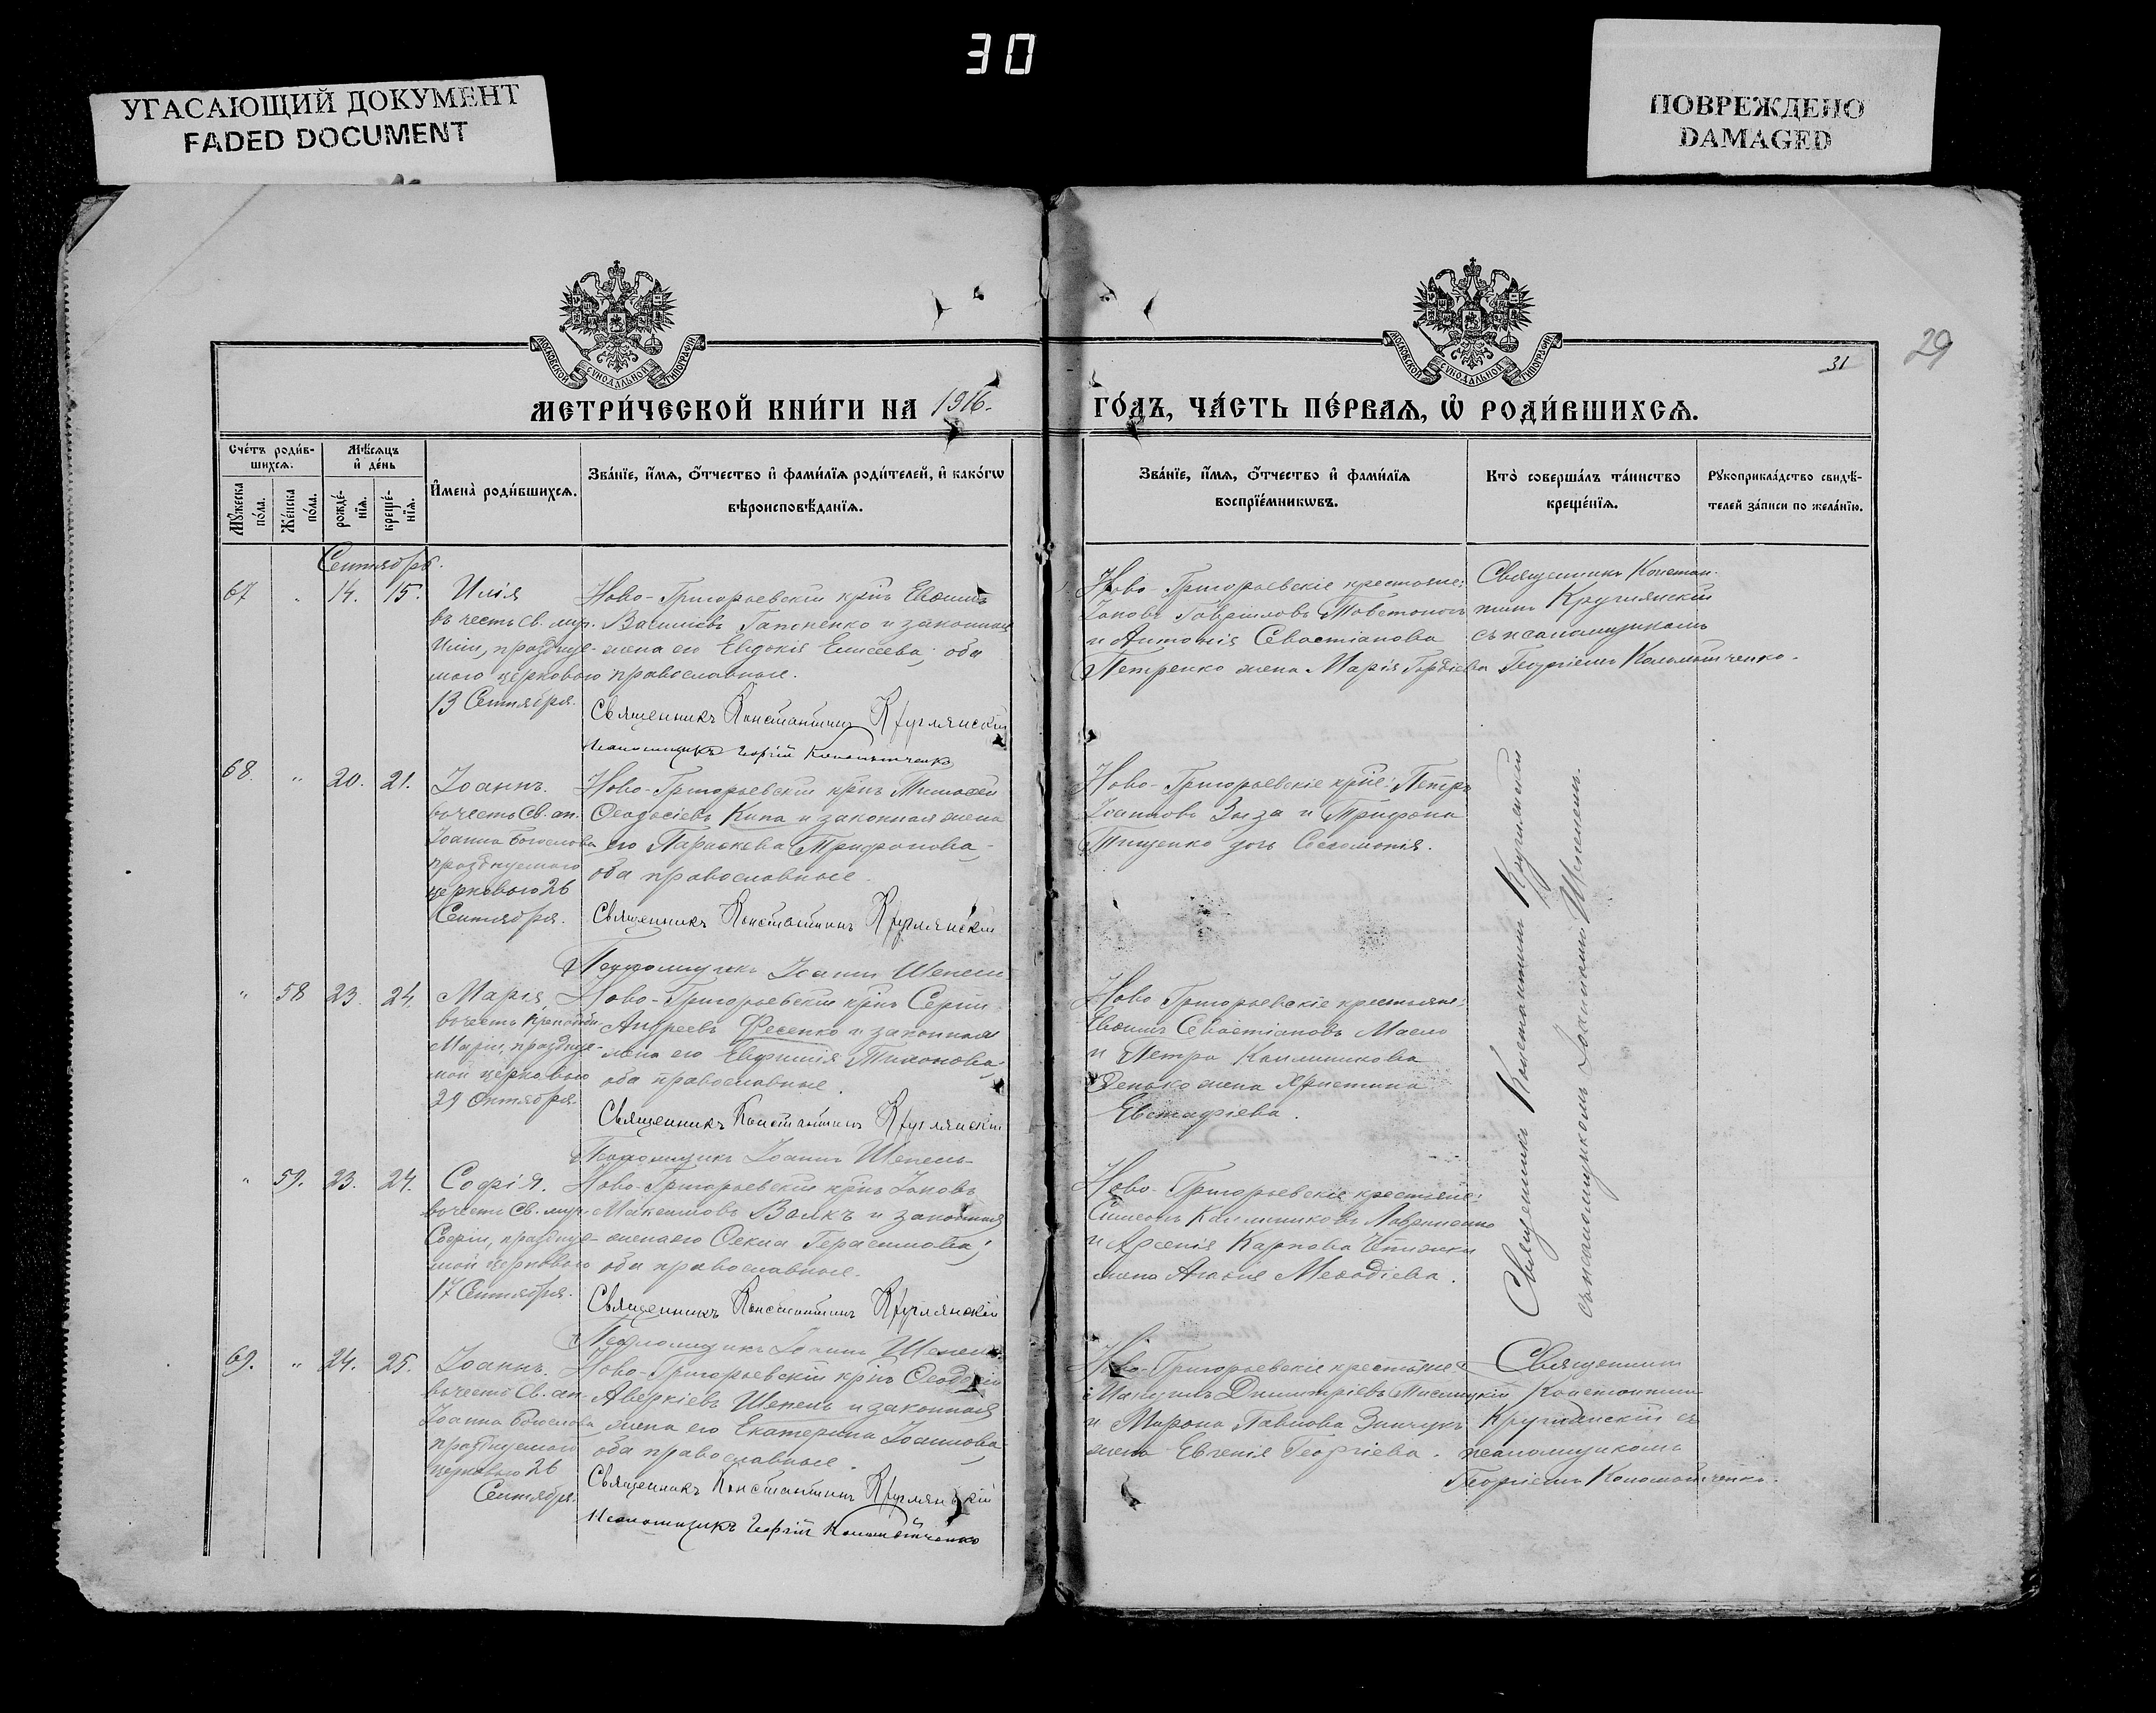 30
УГАСАЮЩИЙ ДОКУМЕНТ
FADED DOCUMENT
ПОВРЕЖДЕНО
DAMAGED
МОСКОВСКОЙ СѴНОДАЛЬНОЙ ТИПОГРАФІИ
МОСКОВСКОЙ СѴНОДАЛЬНОЙ ТИПОГРАФІИ
29
31
МЕТРИ́ЧЕСКОЙ КНИ́ГИ НА 1916. ГО́ДЪ, ЧА́СТЬ ПЕ́РВАѦ, Ѡ҆ РОДИ́ВШИХСѦ.
Сче́тъ роди́в-
шихсѧ.
Мѣ́сѧцъ
и҆ де́нь
Мꙋ́жеска
по́ла.
Же́нска
по́ла.
рожде́-
нїѧ.
креще́-
нїѧ.
И҆мена̀ роди́вшихсѧ.
Зва́нїе, и҆́мѧ, ѻ҆́тчество и҆ фами́лїѧ роди́телей, и҆ како́гѡ
вѣроисповѣ́данїѧ.
Зва́нїе, и҆́мѧ, ѻ҆́тчество и҆ фами́лїѧ
воспрїе́мникѡвъ.
Кто̀ соверша́лъ та́инство
креще́нїѧ.
Рꙋкоприкла́дство свидѣ́-
телей за́писи по жела́нїю.
Сентябрь.
67 " 14. 15. Илія
въ честь св. муч.
Иліи, празднуе-
маго церковью
13 Сентября.
Ново-Григорьевскій крнъ Евѳимъ
Васильевъ Гапоненко и законная
жена его Евдокія Елисеева; оба
православные.
Священникъ Константинъ Круглянскій
Псаломщикъ Георгій Коломытченко
Ново-Григорьевскіе крестьяне:
Іаковъ Гавриловъ Товстоног
и Антонія Севастіанова
Петренко жена Марія Гордіева
Священникъ Констан-
тинъ Круглянскій
съ псаломщикомъ
Георгіемъ Коломытченко.
68. " 20. 21. Іоаннъ.
въ честь Св. ап.
Іоанна Богослова
празднуемаго
церковью 26
Сентября.
Ново-Григорьевскій крнъ Тимоѳей
Ѳеодосіевъ Кипа и законная жена
его Параскева Трифонова,
оба православные.
Священникъ Константинъ Круглянскій
Псаломщикъ Іоаннъ Шепель
Ново-Григорьевскіе крне: Петръ
Іоанновъ Зыза и Трифона
Тищенко дочь Соломонія.
" 58 23. 24. Марія,
въ честь преподобн.
Маріи, праздну-
мой церковью
29 Октября.
Ново-Григорьевскій крнъ Сергій
Андреевъ Фесенко и законная
жена его Евфимія Тихонова,
оба православные.
Священникъ Константинъ Круглянскій
Псаломщикъ Іоаннъ Шепель
Ново Григорьевскіе крестьяне:
Евѳимъ Севастіановъ Масло
и Петра Каллиникова
жена Христина
Евстафіева.
Священникъ Константинъ Круглянскій
съ псаломщикомъ Іоанномъ Шепелемъ.
" 59. 23. 24. Софія.
въ честь Св. муч.
Софіи, праздну-
мой церковью
17 Сентября.
Ново-Григорьевскій крнъ Іаковъ
Максимовъ Волкъ и законная
жена его Ѳекла Герасимова;
оба православные.
Священникъ Константинъ Круглянскій
Псаломщикъ Іоаннъ Шепель
Ново-Григорьевскіе крестьяне:
Симеонъ Каллиниковъ Лавриненко
и Арсенія Карпова
жена Агафія Меѳодіева.
69. " 24. 25. Іоаннъ.
въ честь Св. ап.
Іоанна Богослова
празднуемой
церковью 26
Сентября.
Ново-Григорьевскій крнъ Ѳеодосій
Аверкіевъ Шепель и законная
жена его Екатерина Іоаннова,
оба православные.
Священникъ Константинъ Круглянскій
Псаломщикъ Георгій Коломытченко
Ново-Григорьевскіе крестьяне:
Димитріевъ
и Мирона Павлова Зинчукъ
жена Евгенія Георгіева.
Священникъ
Константинъ
Круглянскій съ
псаломщикомъ
Георгіемъ Коломытченко.